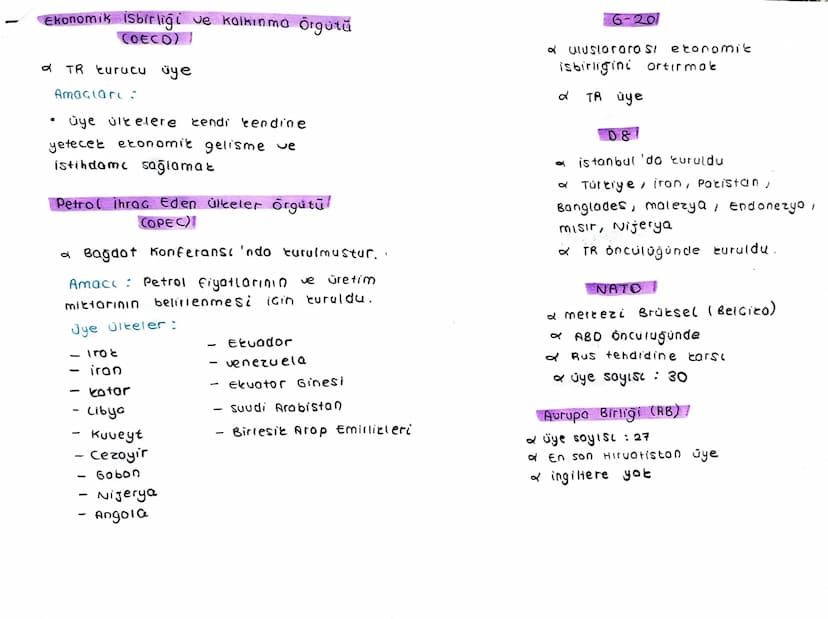 Ekonomik İşbirliği ve Kalkınma Örgütü
(OECD)
α TR kurucu üye
Amaçları :
• üye ülkelere kendi kendine
yetecek ekonomik gelişme ve
istihdamı sağlamak
Petrol İhraç Eden Ülkeler Örgütü
(OPEC)
α Bağdat Konferansı'nda kurulmuştur.
Amacı : Petrol fiyatlarının ve üretim
miktarının belirlenmesi için kuruldu.
üye ülkeler :
- Irak
- iran
- katar
- Libya
- Kuveyt
- Cezayir
- Gabon
- Nijerya
- Angola
- Ekvador
- venezuela
- Ekvator Ginesi
- Suudi Arabistan
- Birleşik Arap Emirlikleri
G-20
α uluslararası ekonomik
işbirliğini artırmak
α TR üye
D8
α istanbul'da kuruldu
α Türkiye, iran, Pakistan,
Bangladeş, malezya, Endonezya,
mısır, Nijerya
α TR öncülüğünde kuruldu.
NATO
α merkezi Brüksel (Belçika)
α ABD öncülüğünde
α Rus tehdidine karşı
α üye sayısı : 30
Avrupa Birliği (AB)
α üye sayısı : 27
α En son Hırvatistan üye
α ingiltere yok